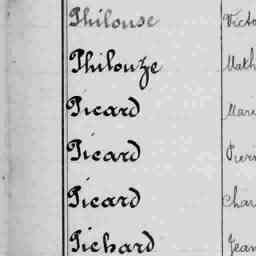 Philouse Victo
Philouze Math
Picard Mari
Picard Pierr
Picard Char
Pichard Jean